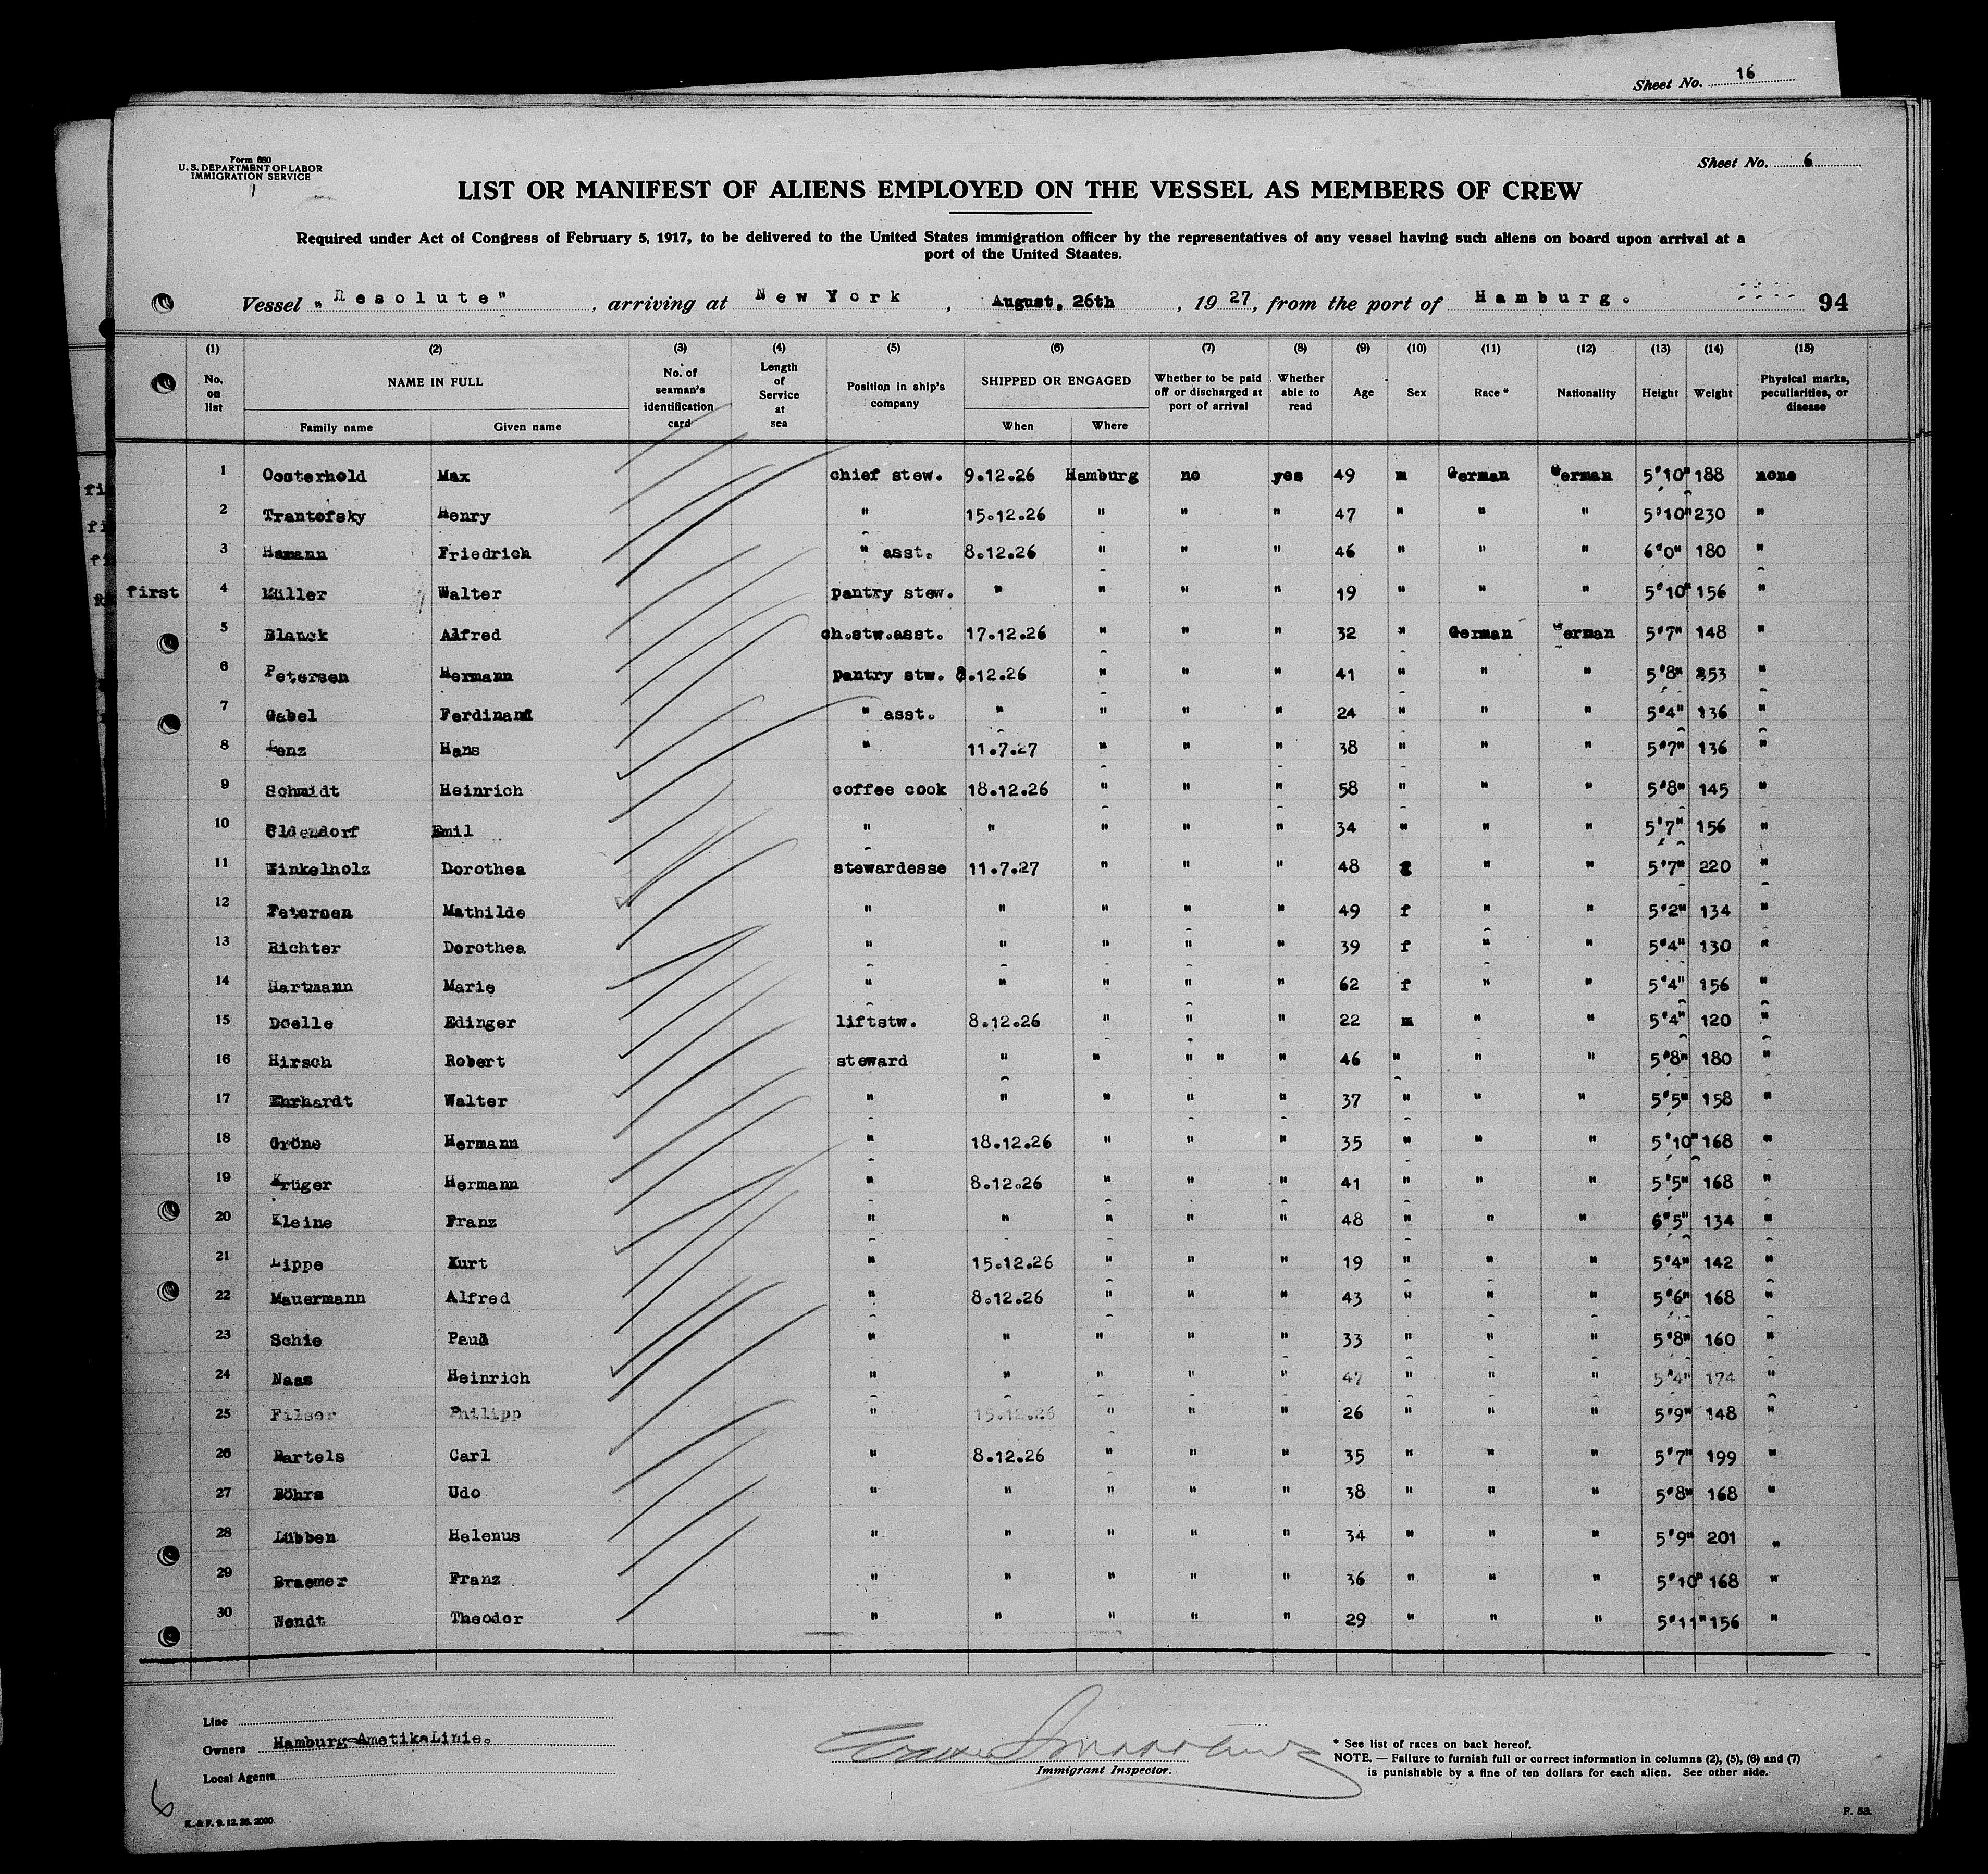 Sheet No. 16
Form 680
U. S. DEPARTMENT OF LABOR
IMMIGRATION SERVICE
Sheet No. 6
LIST OR MANIFEST OF ALIENS EMPLOYED ON THE VESSEL AS MEMBERS OF CREW
Required under Act of Congress of February 5, 1917, to be delivered to the United States immigration officer by the representatives of any vessel having such aliens on board upon arrival at a
port of the United Staates.
Vessel „Resolute", arriving at New York, August, 26th, 1927, from the port of Hamburg. 94
(1) (2) (3) (4) (5) (6) (7) (8) (9) (10) (11) (12) (13) (14) (15)
No. on list NAME IN FULL Family name Given name No. of seaman's identification card Length of Service at sea Position in ship's company SHIPPED OR ENGAGED When Where Whether to be paid off or discharged at port of arrival Whether able to read Age Sex Race * Nationality Height Weight Physical marks, peculiarities, or disease
1 Oosterhold Max chief stew. 9.12.26 Hamburg no yes 49 m German German 5'10" 188 none
2 Trantofsky Henry " 15.12.26 " " " 47 " " " 5'10" 230 "
3 Hamann Friedrich " asst. 8.12.26 " " " 46 " " " 6'0" 180 "
first 4 Müller Walter pantry stew. " " " " 19 " " " 5'10" 156 "
5 Blanck Alfred ch.stw.asst. 17.12.26 " " " 32 " German German 5'7" 148 "
6 Petersen Hermann pantry stw. 8.12.26 " " " 41 " " " 5'8" 253 "
7 Gabel Ferdinand " asst. " " " " 24 " " " 5'4" 136 "
8 Lenz Hans " 11.7.27 " " " 38 " " " 5'7" 136 "
9 Schmidt Heinrich coffee cook 18.12.26 " " " 58 " " " 5'8" 145 "
10 Oldendorf Emil " " " " " 34 " " " 5'7" 156 "
11 Winkelholz Dorothea stewardesse 11.7.27 " " " 48 f " " 5'7" 220 "
12 Petersen Mathilde " " " " " 49 f " " 5'2" 134 "
13 Richter Dorothea " " " " " 39 f " " 5'4" 130 "
14 Hartmann Marie " " " " " 62 f " " 5'4" 156 "
15 Doelle Edinger liftstw. 8.12.26 " " " 22 m " " 5'4" 120 "
16 Hirsch Robert steward " " " " " 46 " " " 5'8" 180 "
17 Ehrhardt Walter " " " " " 37 " " " 5'5" 158 "
18 Gröne Hermann " 18.12.26 " " " 35 " " " 5'10" 168 "
19 Krüger Hermann " 8.12.26 " " " 41 " " " 5'5" 168 "
20 Kleine Franz " " " " " 48 " " " 6'5" 134 "
21 Lippe Kurt " 15.12.26 " " " 19 " " " 5'4" 142 "
22 Mauermann Alfred " 8.12.26 " " " 43 " " " 5'6" 168 "
23 Schie Paul " " " " " 33 " " " 5'8" 160 "
24 Naas Heinrich " " " " " 47 " " " 5'4" 174 "
25 Filser Philipp " 15.12.26 " " " 26 " " " 5'9" 148 "
26 Bartels Carl " 8.12.26 " " " 35 " " " 5'7" 199 "
27 Böhrs Udo " " " " " 38 " " " 5'8" 168 "
28 Lübben Helenus " " " " " 34 " " " 5'9" 201 "
29 Braemer Franz " " " " " 36 " " " 5'10" 168 "
30 Wendt Theodor " " " " " 29 " " " 5'11" 156 "
Line
Owners Hamburg-AmetikaLinie.
Local Agents
Immigrant Inspector.
* See list of races on back hereof.
NOTE. — Failure to furnish full or correct information in columns (2), (5), (6) and (7)
is punishable by a fine of ten dollars for each alien. See other side.
6
K. & F. 9. 12. 26. 2000.
F. 53.